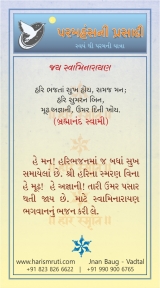 પરમહંસની પ્રસાદી
સ્વથી પરમની યાત્રા
જય સ્વામિનારાયણ
હરિ ભજતાં સુખ હોય, સમજ મન;
હરિ સુમરન બિન,
મૂઢ અજ્ઞાની, ઉમર દિની ખોય.
(બ્રહ્માનંદ સ્વામી)
હે મન! હરિભજનમાં જ બધાં સુખ
સમાયેલાં છે. શ્રી હરિના સ્મરણ વિના
હે મૂઢ! હે અજ્ઞાની! તારી ઉમર પસાર
થતી જાય છે. માટે સ્વામિનારાયણ
ભગવાનનું ભજન કરી લે.
www.harismruti.com
Jnan Baug - Vadtal
+91 823 826 6622
+91 990 900 6765